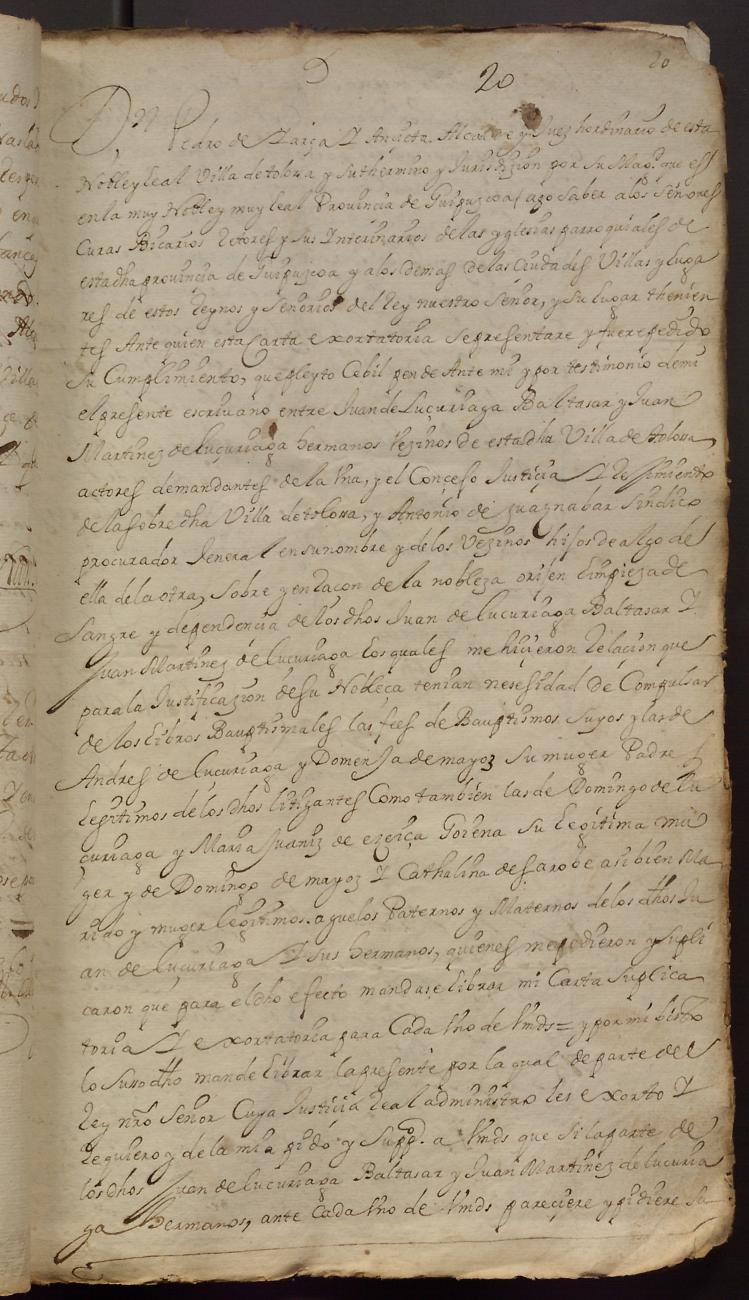 20
20
Dn Pedro de Yarça Y Ancieta Alcalde y Juez hordinario de esta
Noble y Leal Villa de tolossa y su thermino y Jurisdizion por su Magd. que es
en la muy Noble y muy leal Provincia de Guipuzcoa / ago saber a los Señores
Curas Bicarios Retores y sus Interinarios de las yglesias parroquiales de
esta dha provincia de Guipuzcoa y a los demas de las Ciudades Villas y luga
res de estos Reynos y Señorios del Rey nuestro Señor, y su lugar thenien
tes Ante quien esta Carta exortatoria se presentare y fuere pedido
su Cumplimiento, que pleyto Cebil pende Ante mi y por testimonio de mi
el presente escrivano entre Juan de Lucuriaga Baltasar y Juan
Martinez de lucuriaga hermanos Vezinos de esta dha Villa de tolossa
actores demandantes de la Una, y el Concejo Justicia Y Regimiento
de la sobre dha Villa de tolossa, y Antonio de yzaznabar Sindico
procurador Jeneral en su nombre y de los Vezinos hijos de algo de
ella de la otra, sobre y en racon de la nobleza orijen limpieza de
Sangre y dependencia de los dhos Juan de lucuriaga Baltasar Y
Juan Martinez de lucuriaga los quales me hicieron Relacion que
para la Justificazion de su Nobleca tenian nesesidad de Compulsar
de los libros Bauptismales las fees de Bauptismos suyos y las de
Andres de lucuriaga y Domenja de mayoz su muger Padres
legitimos de los dhos litigantes Como tambien las de Domingo de lu
curiaga y Maria Juaniz de ezeiça Goiena su legitima mu
ger y de Domingo de mayoz Y Cathalina de sarobe asi bien Ma
rido y muger legitimos. aguelos Paternos y Maternos de los dhos Ju
an de lucuriaga Y sus hermanos, quienes me pidieron y supli
caron que para el dho efecto mandase librar mi Carta Suplica
toria Y exortatoria para Cada Uno de Vmds = y por mi bisto
lo suso dho mande librar la presente por la qual de parte del
Rey nro Señor Cuya Justicia Real administro les exorto Y
Requiero y de la mia pido y Suppco. a Vmds que si la parte de
los dhos Juan de lucuriaga Baltasar y Juan Martinez de lucuria
ga hermanos, ante Cada Uno de Vmds pareciere y pidiere su